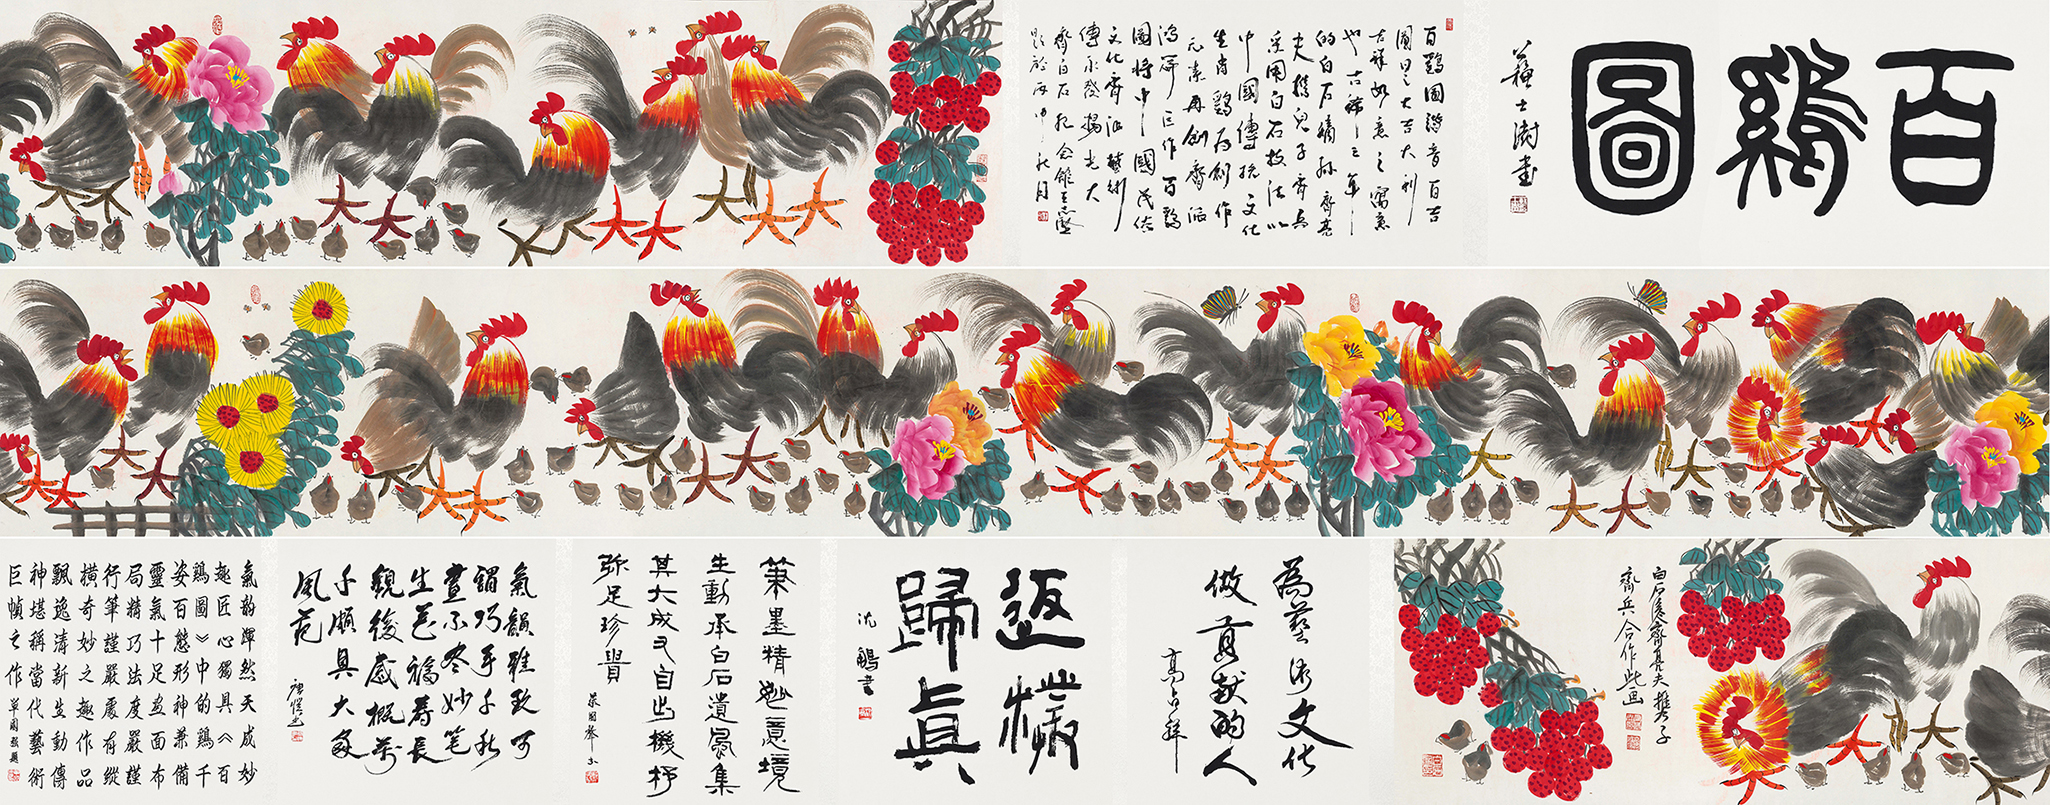 百鷄圖
蘇士澍書
百鷄圖諧音百吉
圖曰之大吉大利
吉祥如意之寓意
也古稀之年
的白石嫡孫齊亮
夫携兒子齊兵
采用白石技法以
中國傳統文化
生肖鷄为創作
元素再創齊派
鴻篇巨作百鷄
圖将中國民俗
文化齊派藝術
傳承發揚光大
齊白石紀念館王志堅
題於丙申秋月
白石後裔齊亮夫携子
齊兵合作此画
為藝術文化
做貢献的人
高占祥
返樸
歸真
沈鵬書
筆墨精妙意境
生動承白石遺風集
其大成又自出機抒
弥足珍貴
蔡國聲書
氣韻雖致可
謂巧手千秋
畫不冬妙笔
生芭福壽長
觀後感概萬
千頗具大家
風范
氣韵渾然天成妙
趣匠心獨具《百
鷄圖》中的鷄千
姿百態形神兼備
靈氣十足盈面布
局精巧法度嚴謹
行筆謹嚴處有縱
横奇妙之趣作品
飄逸清新生動傳
神堪稱當代藝術
巨幀之作 單國强題